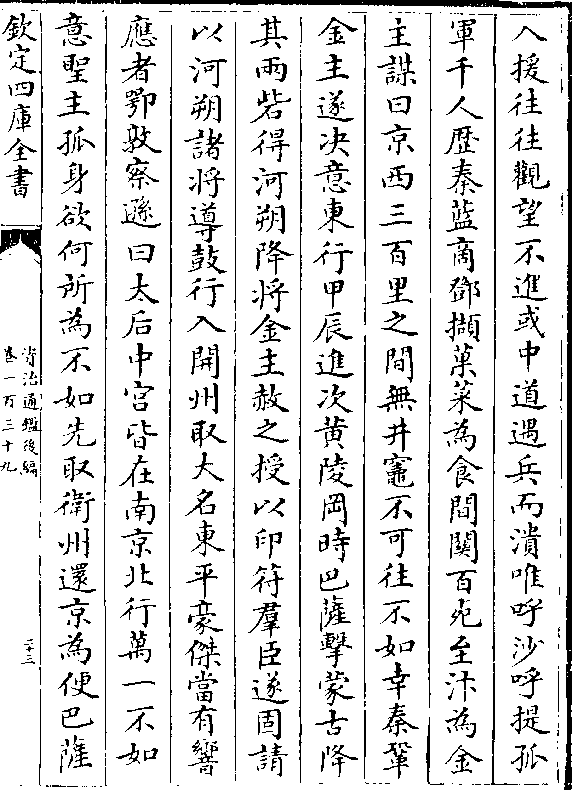 入援往往觀望不進或中道遇兵而潰唯呼沙呼提孤
軍千人歴秦藍商鄧擷菓菜為食間關百死至汴為金
主謀曰京西三百里之間無井竈不可往不如幸秦鞏
金主遂决意東行甲辰進次黄陵岡時巴薩擊蒙古降
其兩砦得河朔降將金主赦之授以印符羣臣遂固請
以河朔諸將導鼓行入開州取大名東平豪傑當有響
應者鄂敦察遜曰太后中宮皆在南京北行萬一不如
意聖主孤身欲何所為不如先取衛州還京為便巴薩
欽定四庫全書
資治通鑑後編
卷一百三十九
二十三